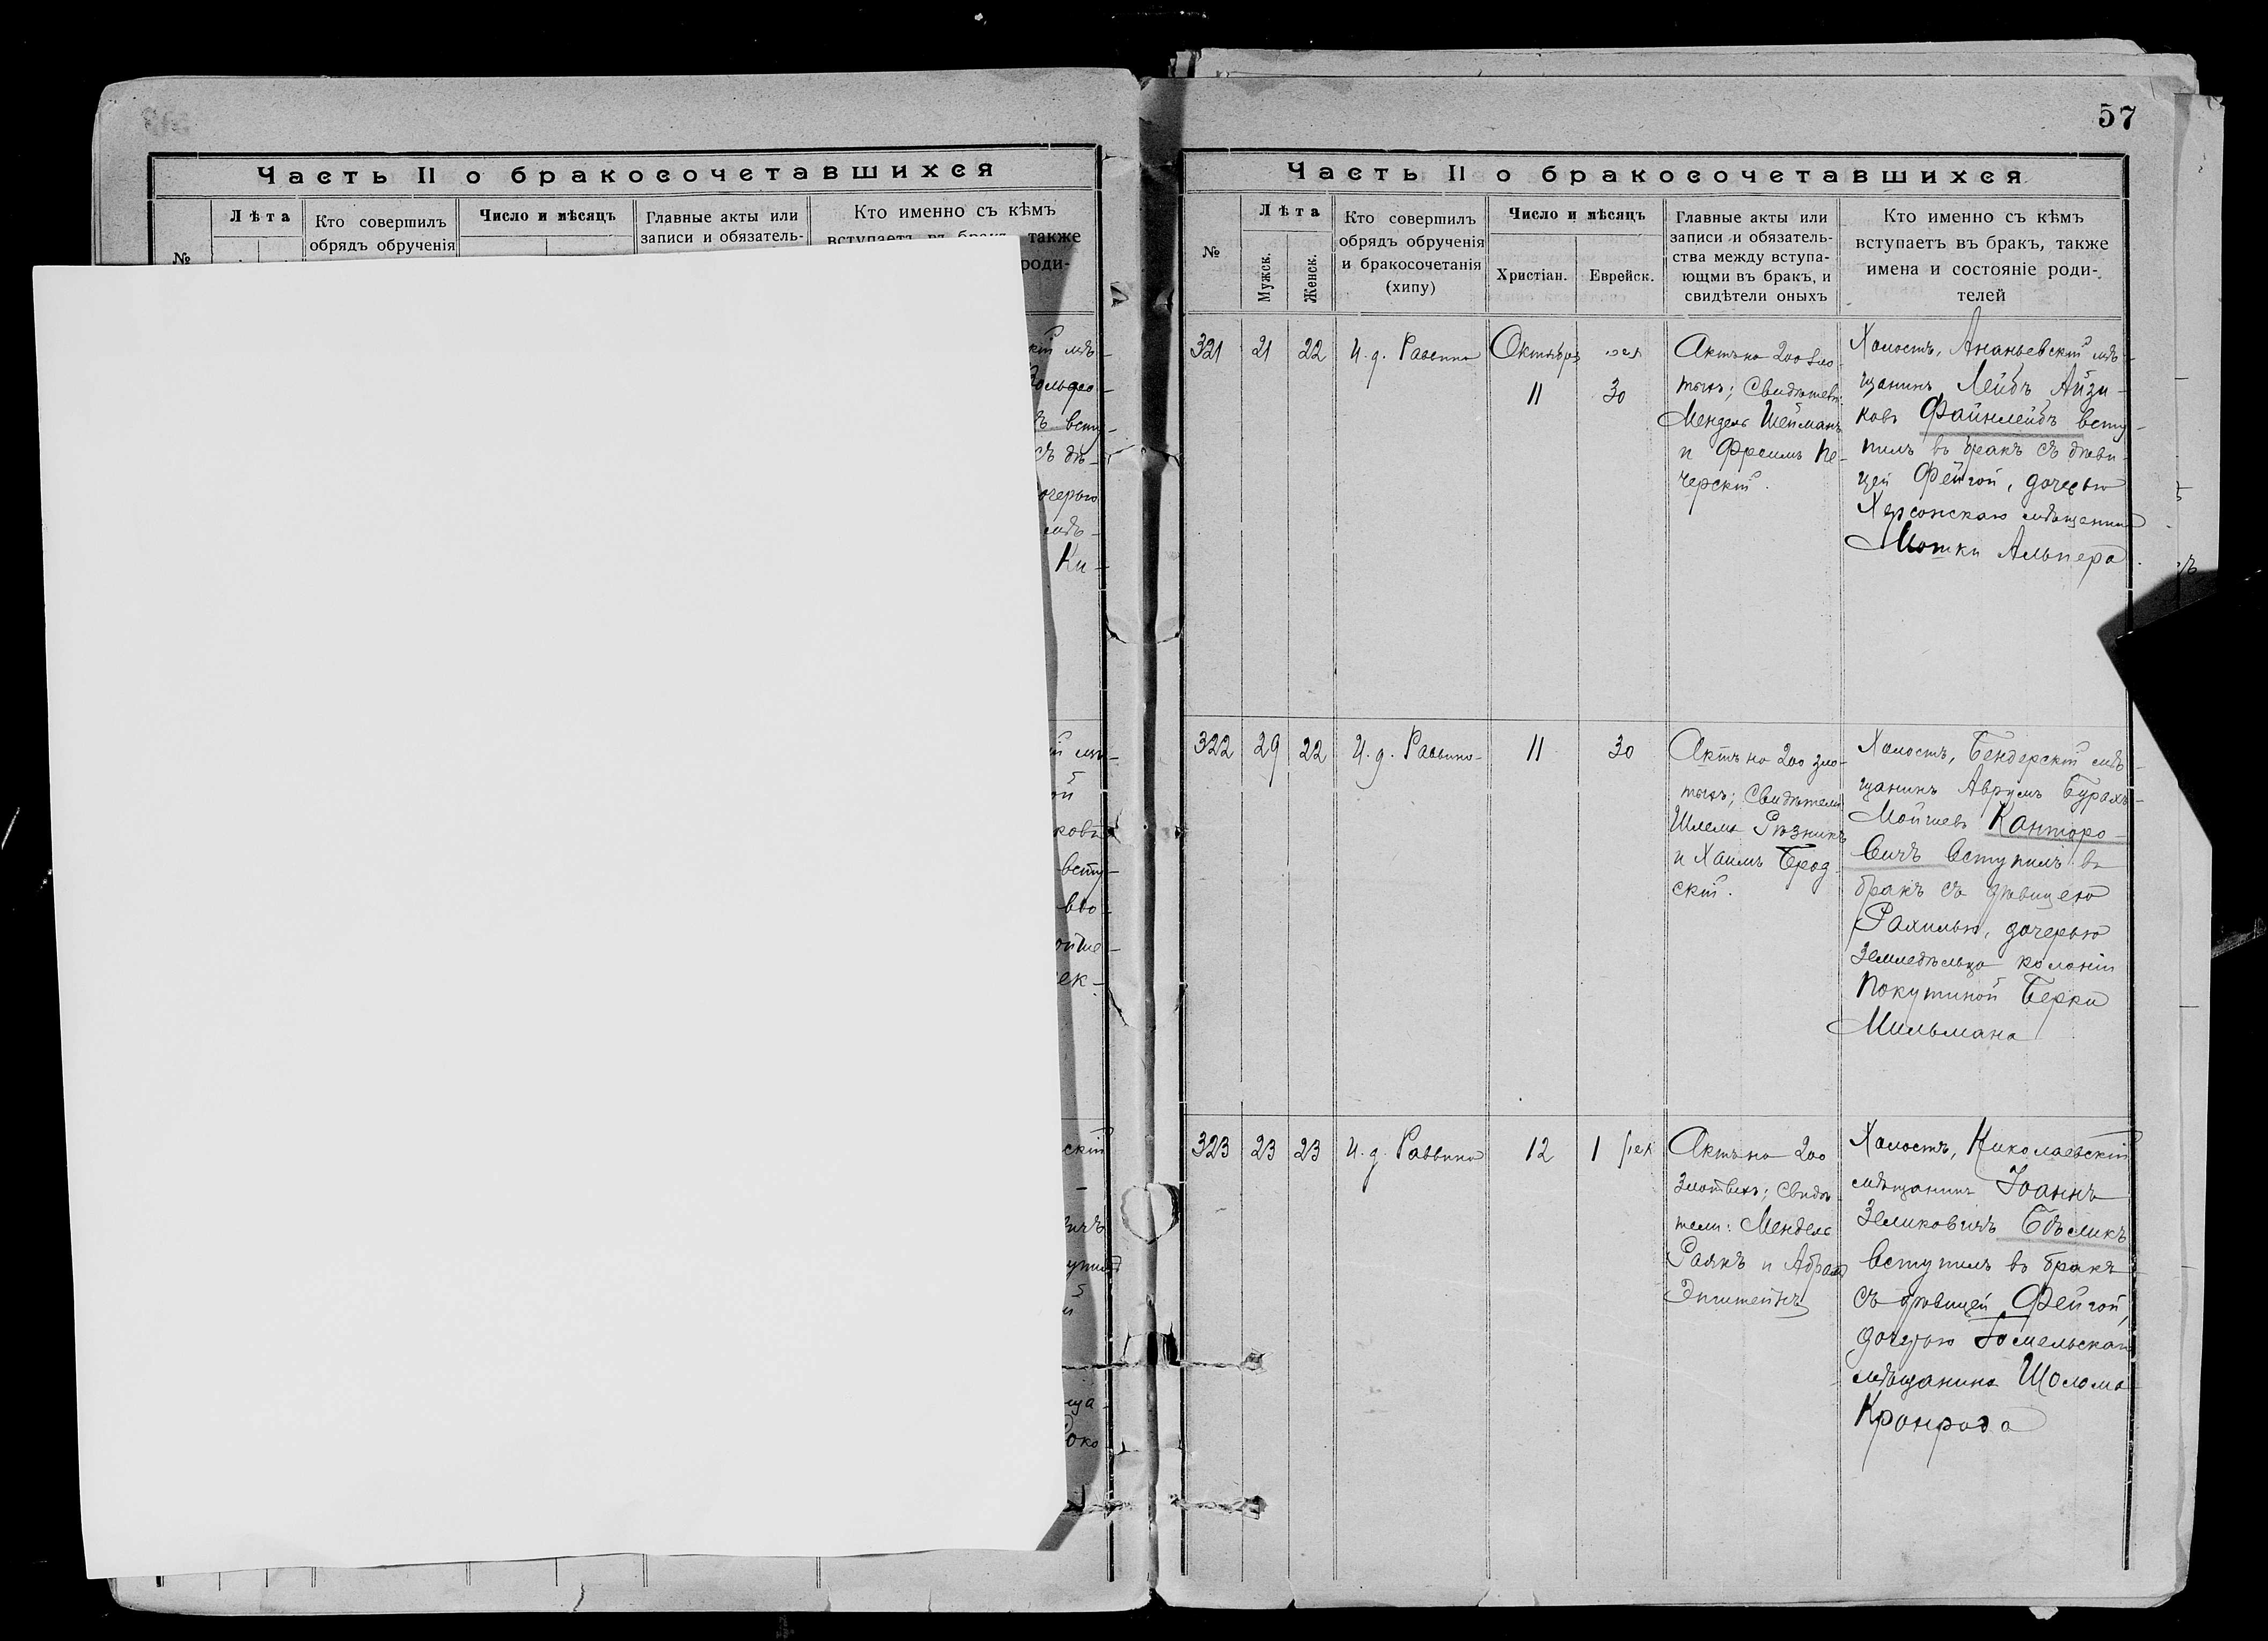 57
Часть II о бракосочетавшихся
Лѣта
Кто совершилъ
обрядъ обрученія
Число и мѣсяцъ
Главные акты или
записи и обязатель-
Кто именно съ кѣмъ
вступаетъ въ бракъ, также
роди-
№
кій мѣ-
Вольфо-
ъ всту-
съ дѣ-
очерью
мѣ-
Ки-
всту-
ек-
скій
Соко
Часть II о бракосочетавшихся
№
Лѣта
Мужск.
Женск.
Кто совершилъ
обрядъ обрученія
и бракосочетанія
(хипу)
Число и мѣсяцъ
Христіан.
Еврейск.
Главные акты или
записи и обязатель-
ства между вступа-
ющми въ бракъ, и
свидѣтели оныхъ
Кто именно съ кѣмъ
вступаетъ въ бракъ, также
имена и состояніе роди-
телей
321
21
22
И. д. Раввина
Октября
11
30
Актъ на 200 зло-
тыхъ; Свидѣтели:
Мендель Шейманъ
и Фроимъ Пе-
черскій.
Холостъ, Ананьевскій мѣ-
щанинъ Лейбъ Айзи-
ковъ Файнлейбъ всту-
пилъ въ бракъ съ дѣви-
цей Фейгой, дочерью
Херсонскаго мѣщанина
Мошки Альпера.
322
29
22
И. д. Раввина
11
30
Актъ на 200 зло-
тыхъ; Свидѣтели
Шлема Рѣзникъ
и Хаимъ Брод-
скій.
Холостъ, Бендерскій мѣ-
щанинъ Аврумъ Бурахъ-
Мойшевъ Канторо-
вичъ вступилъ въ
бракъ съ дѣвицею
Рахилью, дочерью
Земледѣльца колоніи
Покутиной Берки
Мильмана
323
23
23
И. д. Раввина
12
1
Актъ на 200
злотыхъ; Свидѣ-
тели: Мендель
Раякъ и Абрам
Эпштейнъ
Холостъ, Николаевскій
мѣщанинъ Іоаннъ
Зеликовичъ
вступилъ въ бракъ
съ дѣвицей Фейгой,
дочерью Гомельскаго
мѣщанина Шолома
Кронрода